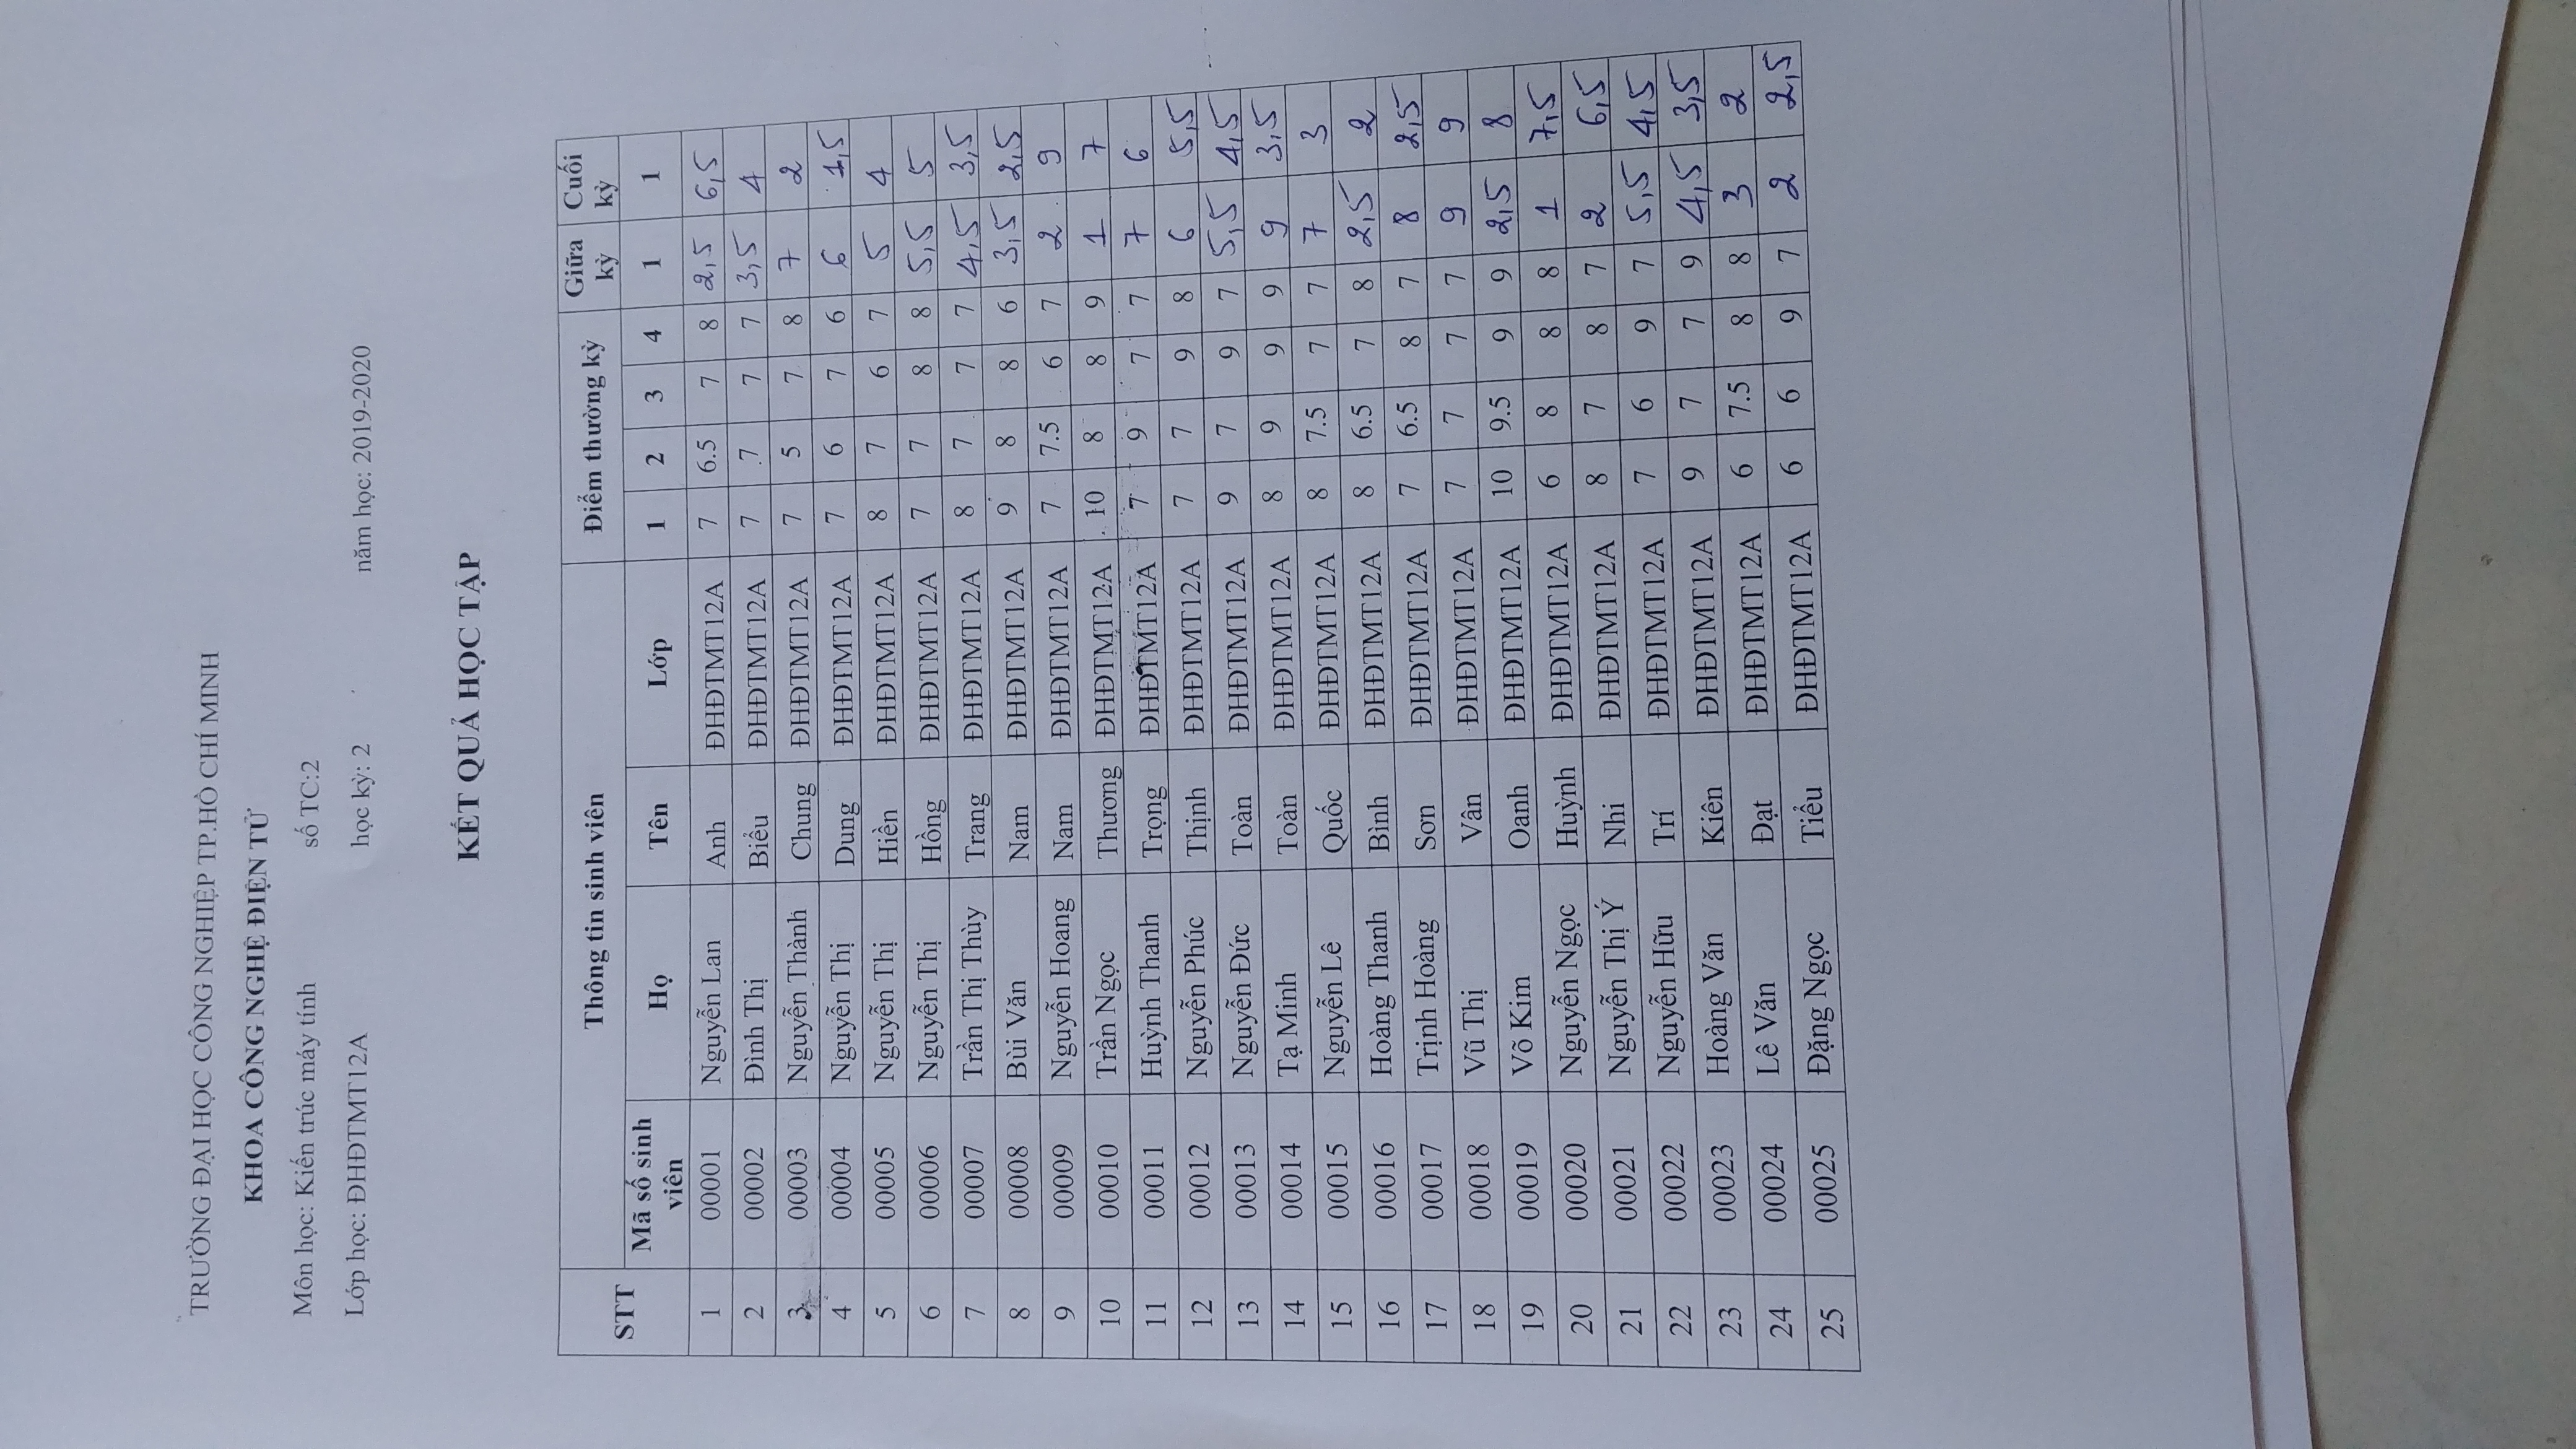 TRƯỜNG ĐẠI HỌC CÔNG NGHIỆP TP.HỒ CHÍ MINH
KHOA CÔNG NGHỆ ĐIỆN TỬ
Môn học: Kiến trúc máy tính số TC:2
Lớp học: ĐHĐTMT12A học kỳ: 2 năm học: 2019-2020
KẾT QUẢ HỌC TẬP
STT Thông tin sinh viên Điểm thường kỳ Giữa kỳ Cuối kỳ
Mã số sinh viên Họ Tên Lớp 1 2 3 4 1 1
1 00001 Nguyễn Lan Anh ĐHĐTMT12A 7 6.5 7 8 2,5 6,5
2 00002 Đình Thị Biểu ĐHĐTMT12A 7 7 7 7 3,5 4
3 00003 Nguyễn Thành Chung ĐHĐTMT12A 7 5 7 8 7 2
4 00004 Nguyễn Thị Dung ĐHĐTMT12A 7 6 7 6 6 1,5
5 00005 Nguyễn Thị Hiền ĐHĐTMT12A 8 7 6 7 5 4
6 00006 Nguyễn Thị Hồng ĐHĐTMT12A 7 7 8 8 5,5 5
7 00007 Trần Thị Thùy Trang ĐHĐTMT12A 8 7 7 7 4,5 3,5
8 00008 Bùi Văn Nam ĐHĐTMT12A 9 8 8 6 3,5 2,5
9 00009 Nguyễn Hoang Nam ĐHĐTMT12A 7 7.5 6 7 2 9
10 00010 Trần Ngọc Thương ĐHĐTMT12A 10 8 8 9 1 7
11 00011 Huỳnh Thanh Trọng ĐHĐTMT12A 7 9 7 7 7 6
12 00012 Nguyễn Phúc Thịnh ĐHĐTMT12A 7 7 9 8 6 5,5
13 00013 Nguyễn Đức Toàn ĐHĐTMT12A 9 7 9 7 5,5 4,5
14 00014 Tạ Minh Toàn ĐHĐTMT12A 8 9 9 9 9 3,5
15 00015 Nguyễn Lê Quốc ĐHĐTMT12A 8 7.5 7 7 7 3
16 00016 Hoàng Thanh Bình ĐHĐTMT12A 8 6.5 7 8 2,5 2
17 00017 Trịnh Hoàng Sơn ĐHĐTMT12A 7 6.5 8 7 8 2,5
18 00018 Vũ Thị Vân ĐHĐTMT12A 7 7 7 7 9 9
19 00019 Võ Kim Oanh ĐHĐTMT12A 10 9.5 9 9 2,5 8
20 00020 Nguyễn Ngọc Huỳnh ĐHĐTMT12A 6 8 8 8 1 7,5
21 00021 Nguyễn Thị Ý Nhi ĐHĐTMT12A 8 7 8 7 2 6,5
22 00022 Nguyễn Hữu Trí ĐHĐTMT12A 7 6 9 7 5,5 4,5
23 00023 Hoàng Văn Kiên ĐHĐTMT12A 9 7 7 9 4,5 3,5
24 00024 Lê Văn Đạt ĐHĐTMT12A 6 7.5 8 8 3 2
25 00025 Đặng Ngọc Tiểu ĐHĐTMT12A 6 6 9 7 2 2,5